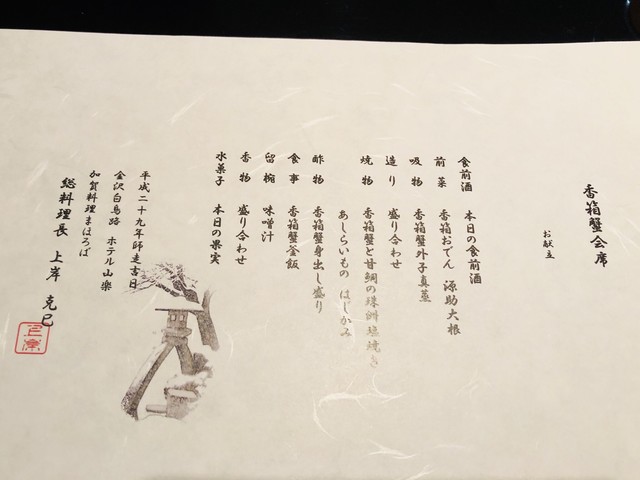 香箱蟹会席
お献立
食前酒 本日の食前酒
前菜 香箱おでん 源助大根
吸物 香箱蟹外子真蒸
造り 盛り合わせ
焼物 香箱蟹と甘鯛の珠洲塩焼き
あしらいもの はじかみ
酢物 香箱蟹身出し盛り
食事 香箱蟹釜飯
留椀 味噌汁
香物 盛り合わせ
水菓子 本日の果実
平成二十九年師走吉日
金沢白鳥路 ホテル山楽
加賀料理まほろば
総料理長 上岸 克巳